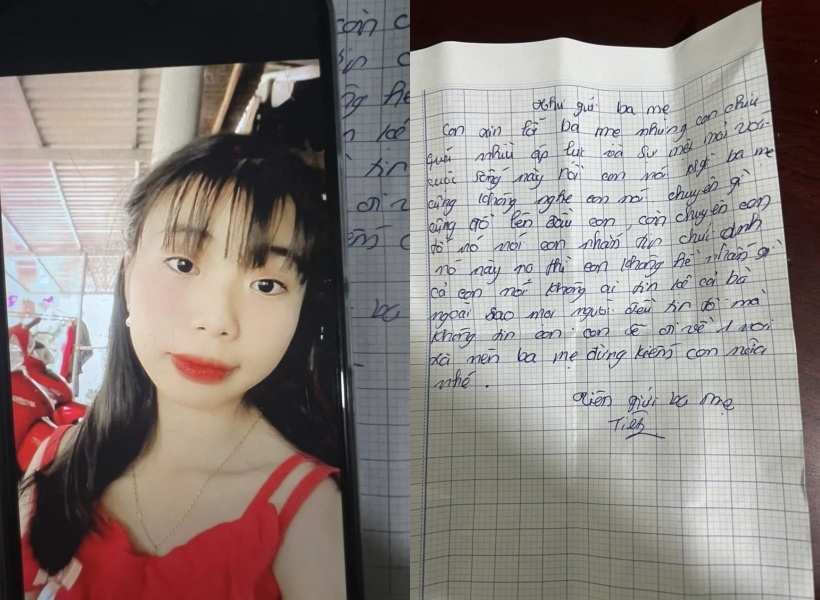 Thư gửi ba mẹ
Con xin lỗi ba mẹ nhưng con chịu
quá nhiều áp lực và sự mệt mỏi với
cuộc sống này rồi con nói ba mẹ
cũng không nghe con nói chuyện gì
cũng đổ lên đầu con con chuyện con
tố nó nói con nhắn tin chửi
nó này nọ thì con không hề nhắn gì
cả con nói không ai tin kể cả bà
ngoại sao mọi người đều tin tố mà
không tin con con sẽ đi về 1 nơi
xa nên ba mẹ đừng kiếm con nữa
nhé.
Tiên gửi ba mẹ
Tiên